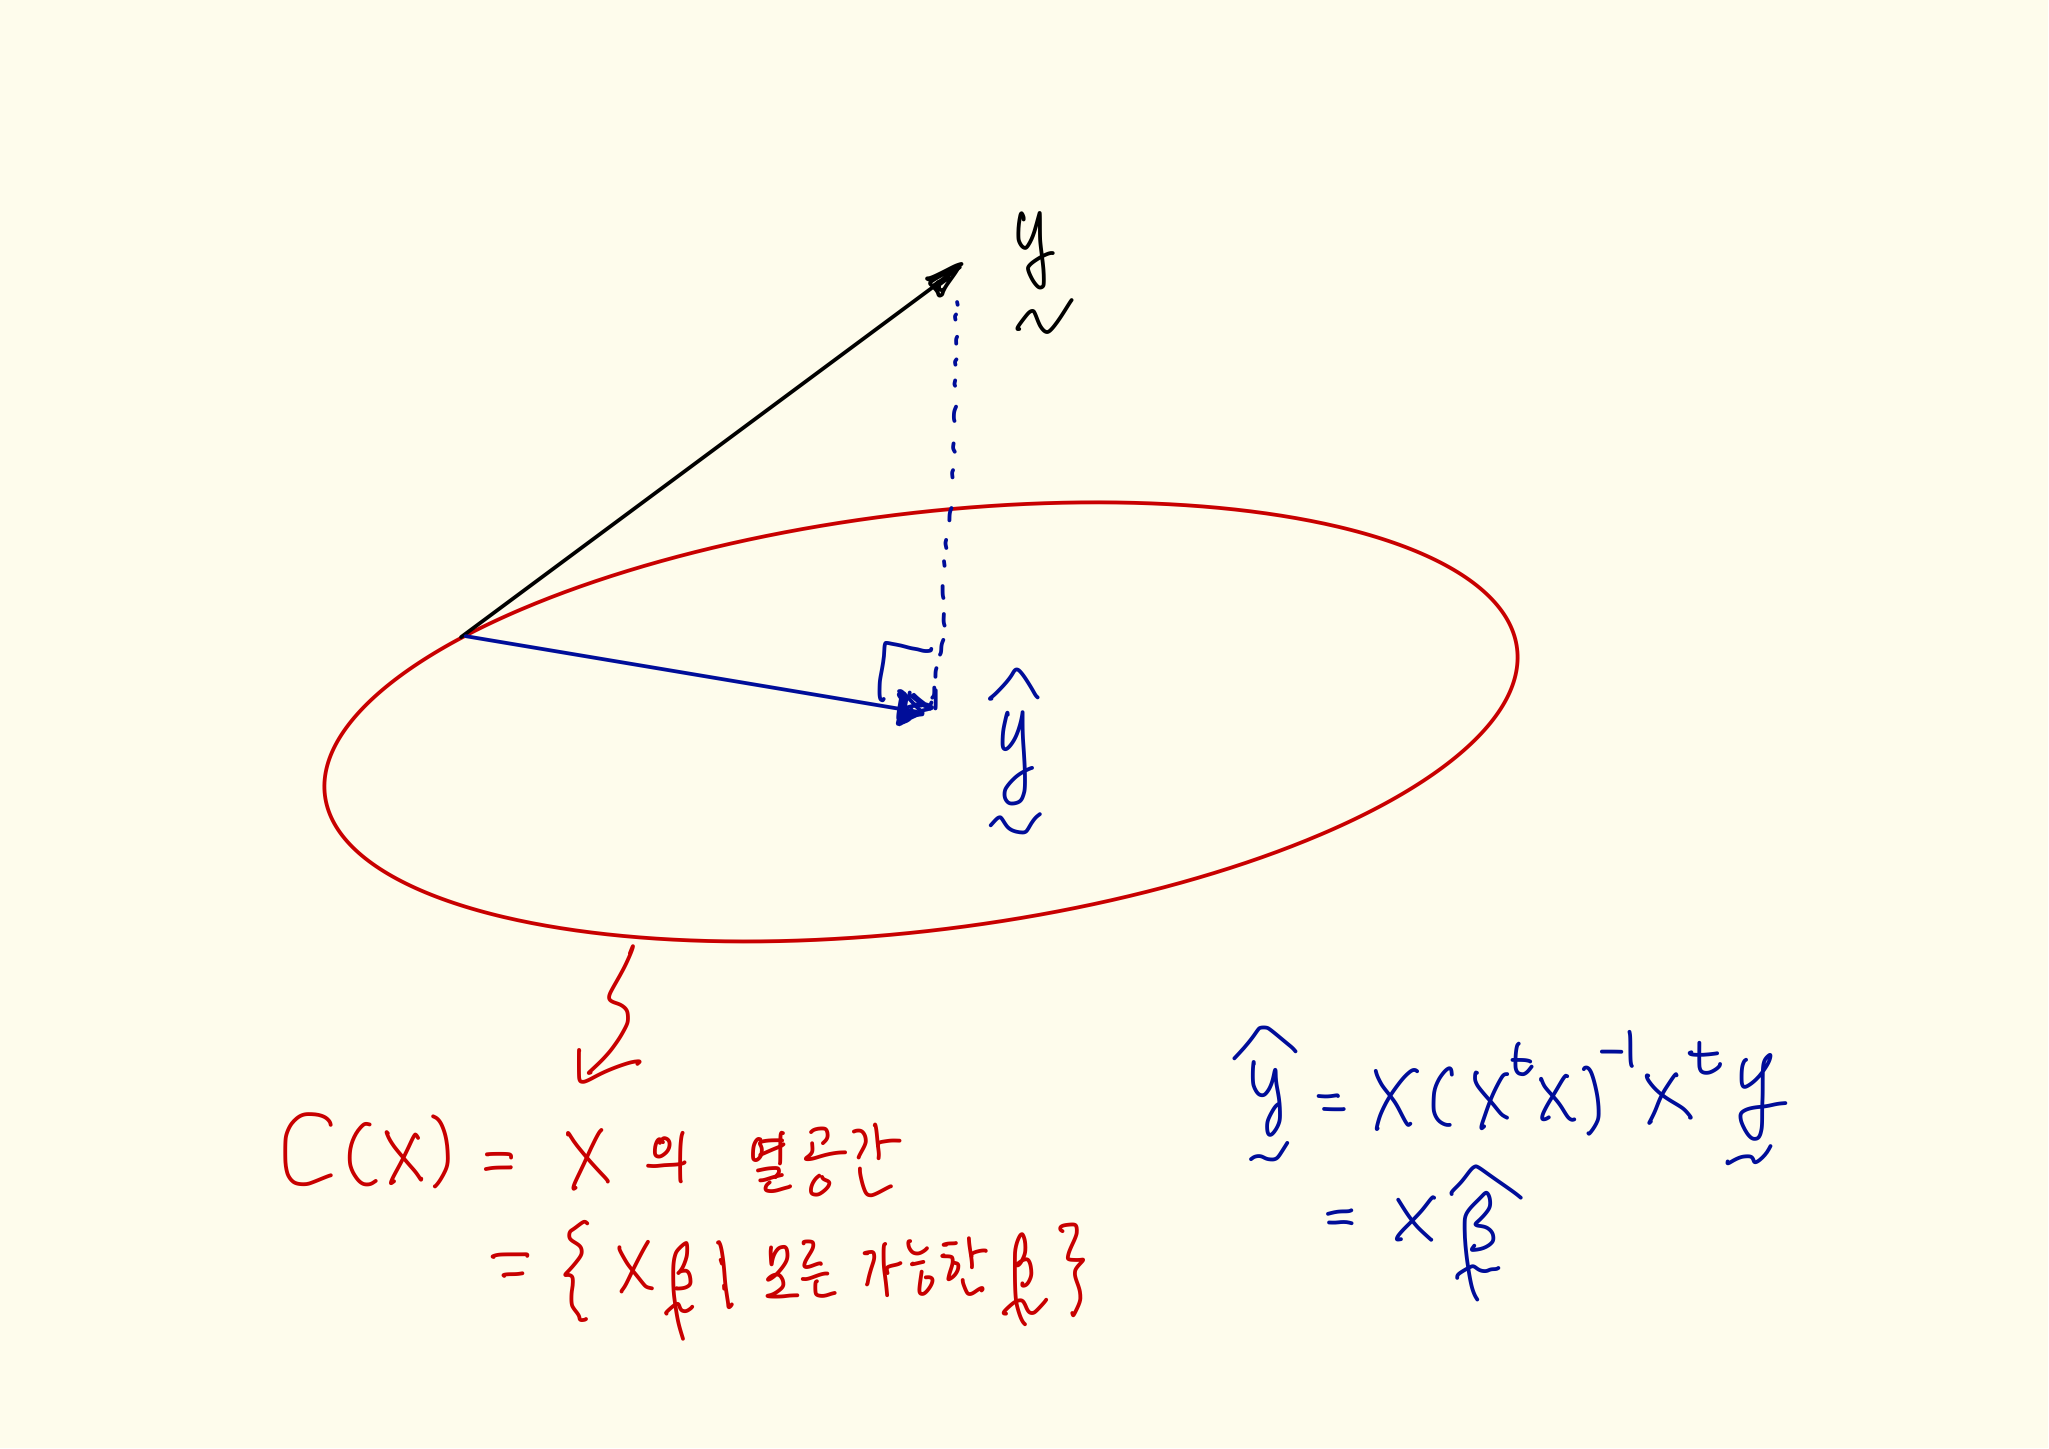 y
ŷ
C(X) = X 의 열공간
= { Xβ | 모든 가능한 β }
ŷ = X(XᵗX)⁻¹Xᵗy
= Xβ̂